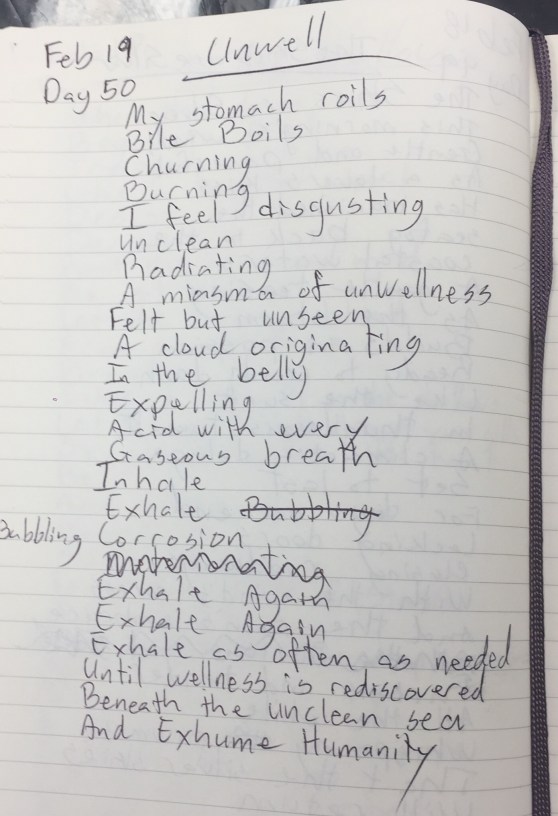 Feb 19
Unwell
Day 50
My stomach roils
Bile Boils
Churning
Burning
I feel disgusting
unclean
Radiating
A miasma of unwellness
Felt but unseen
A cloud originating
In the belly
Expelling
Acid with every
Gaseous breath
Inhale
Exhale Bubbling
Bubbling Corrosion
Exhale Again
Exhale Again
Exhale as often as needed
Until wellness is rediscovered
Beneath the unclean sea
And Exhume Humanity